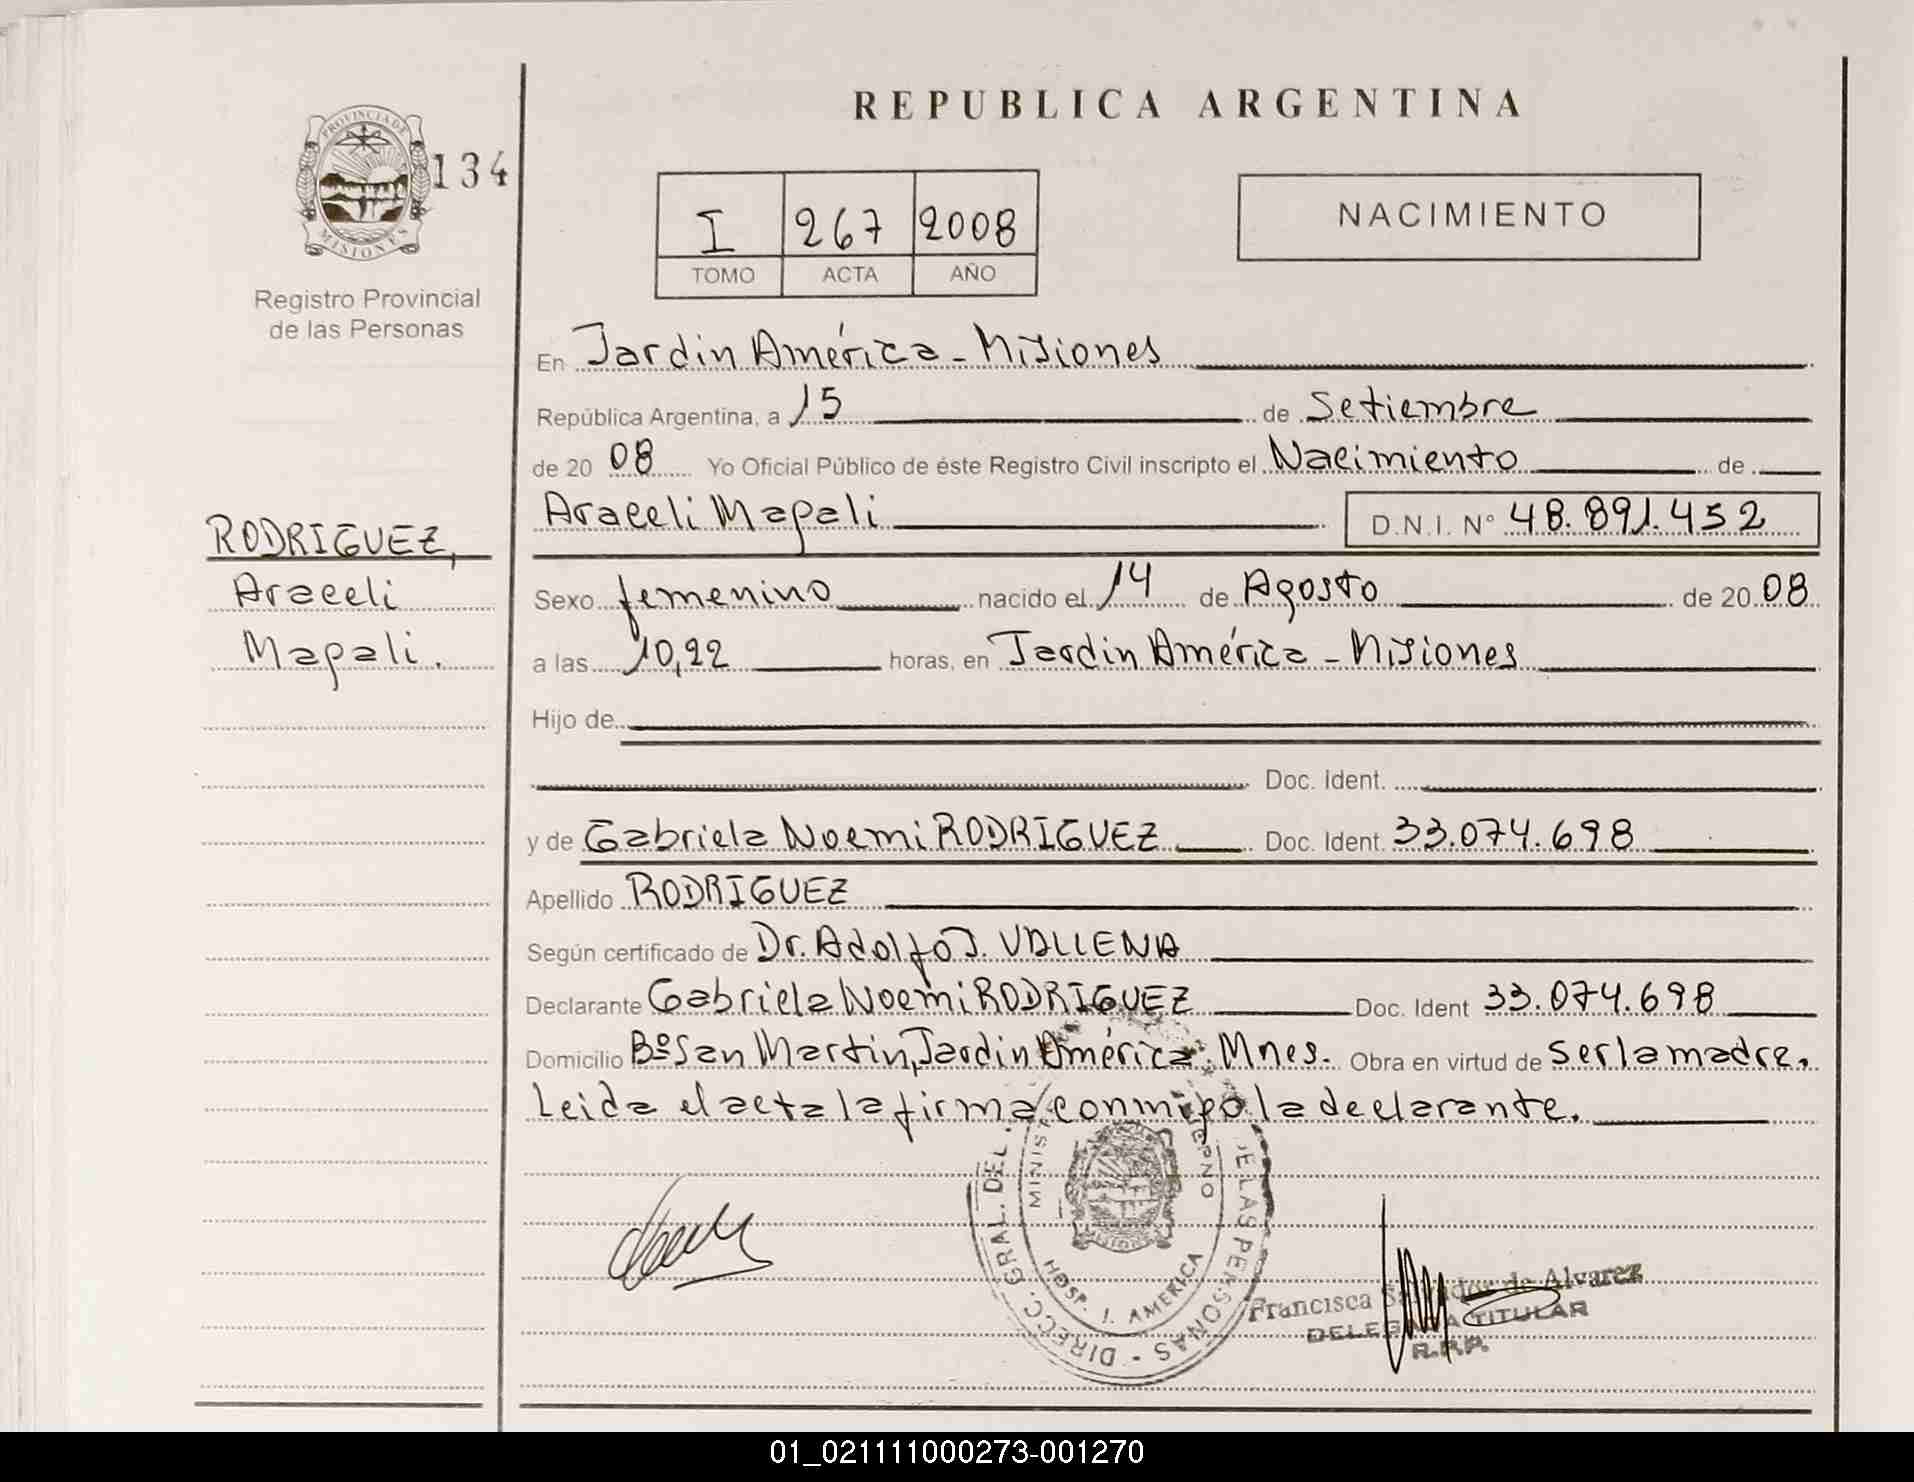 REPUBLICA ARGENTINA
PROVINCIA DE
MISIONES
134
Registro Provincial
de las Personas
I 267 2008
TOMO ACTA AÑO
NACIMIENTO
En Jardin América - Misiones
República Argentina, a 15 de Setiembre
de 20 08 Yo Oficial Público de éste Registro Civil inscripto el Nacimiento de
Araceli Magali D.N.I. N° 48.891.452
RODRIGUEZ,
Araceli
Magali.
Sexo femenino nacido el 14 de Agosto de 20 08
a las 10,22 horas, en Jardin América - Misiones
Hijo de
Doc. Ident.
y de Gabriela Noemi RODRIGUEZ Doc. Ident. 33.074.698
Apellido RODRIGUEZ
Según certificado de Dr. Adolfo J. VALLENA
Declarante Gabriela Noemi RODRIGUEZ Doc. Ident 33.074.698
Domicilio Bº San Martin, Jardin América. Mnes. Obra en virtud de ser la madre.
Leida el acta la firma conmigo la declarante.
DIRECC. GRAL. DEL DE LAS PERSONAS
HOSP. J. AMERICA
Francisca Salvador de Alvarez
DELEGADA TITULAR
R.P.P.
01_021111000273-001270